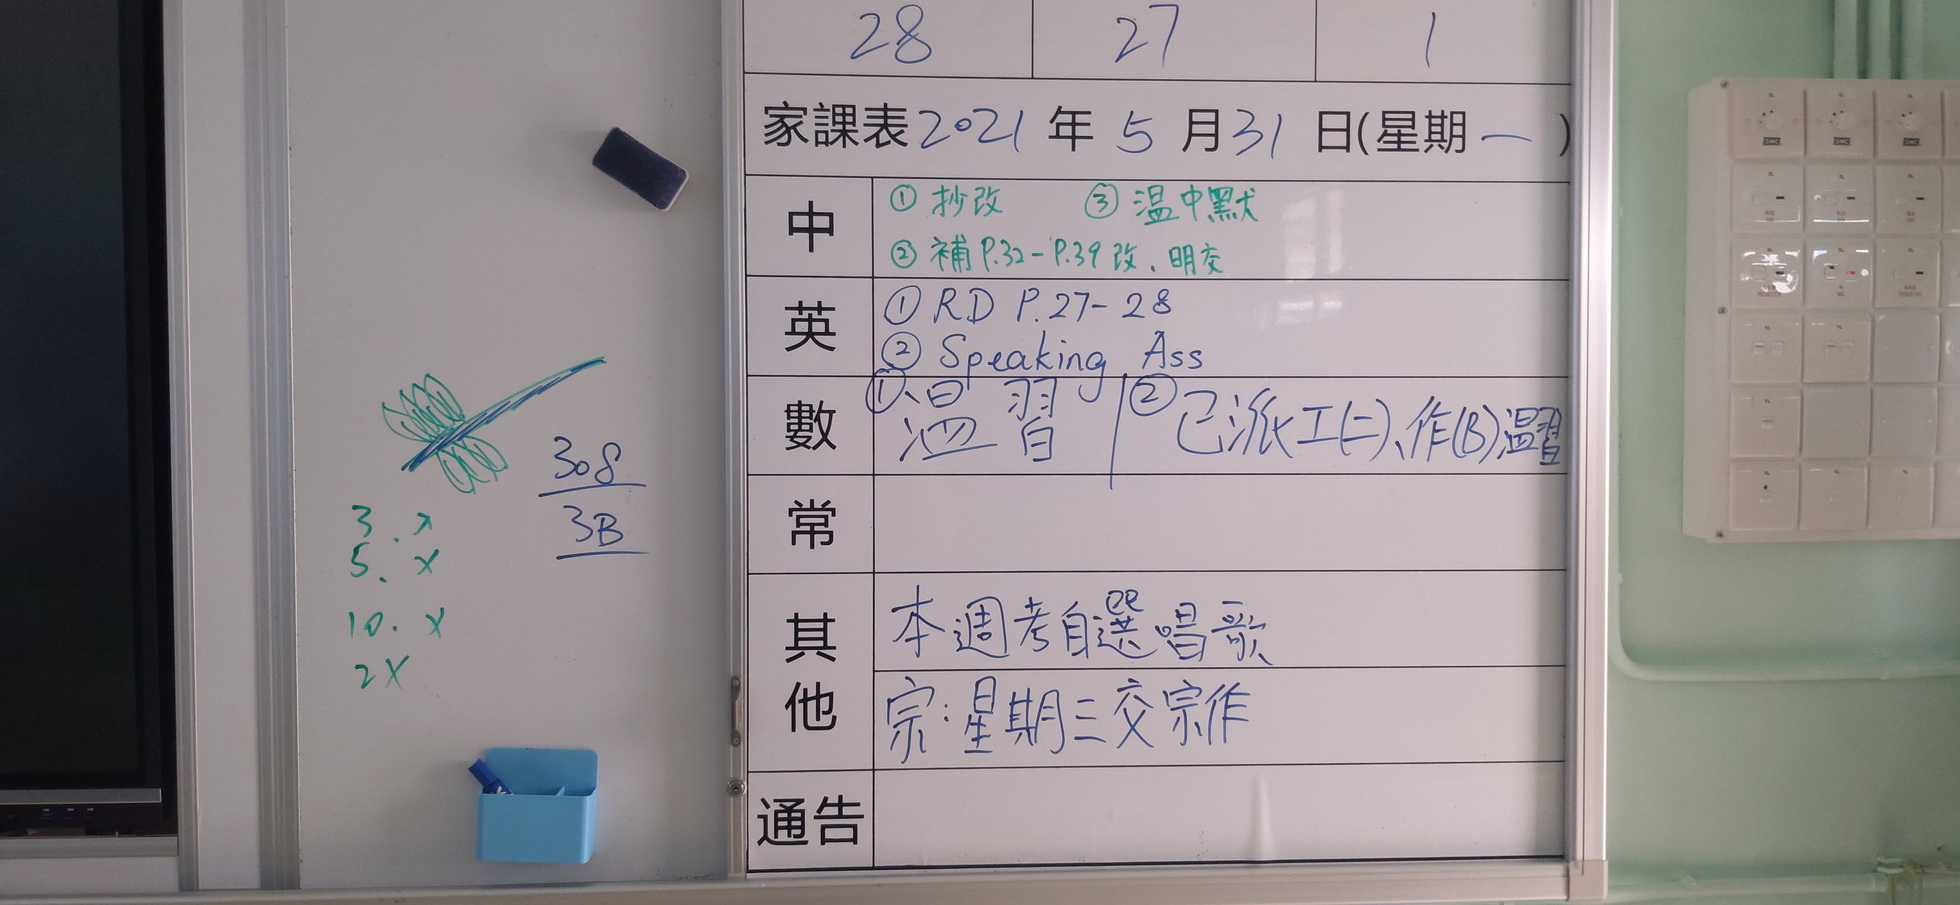 28 27 1
家課表2021年5月31日(星期一)
中 ① 抄改 ③ 温中默
② 補 P.32-P.39 改、明交
英 ① RD P.27-28
② Speaking Ass
數 ① 温習 | ② 已派工(二)、作(B)温習
常
其他 本週考自選唱歌
宗:星期三交宗作
通告
308
3B
3. x
5. x
10. x
2X